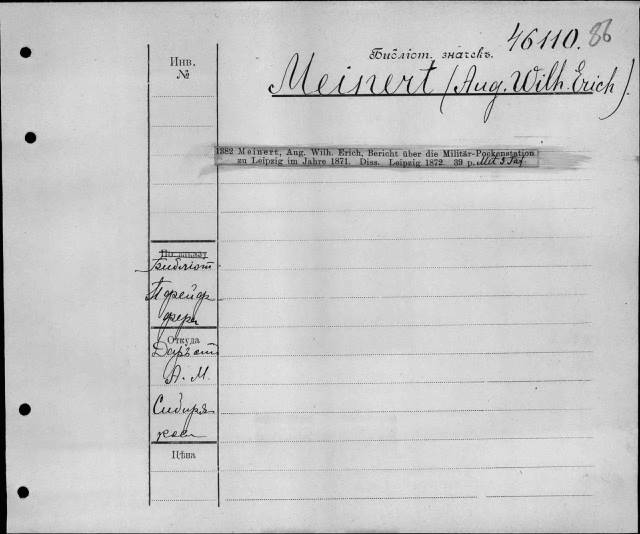 46110. 86
Библіот. значекъ.
Инв.
№
Meinert (Aug. Wilh. Erich).
1382 Meinert, Aug. Wilh. Erich, Bericht über die Militär-Pockenstation
zu Leipzig im Jahre 1871. Diss. Leipzig 1872. 39 p. Mit 3 Taf
По заказу
Библіот
Пфейф
фера
Откуда
Даръ отъ
А. М.
Сибиря
кова
Цѣна